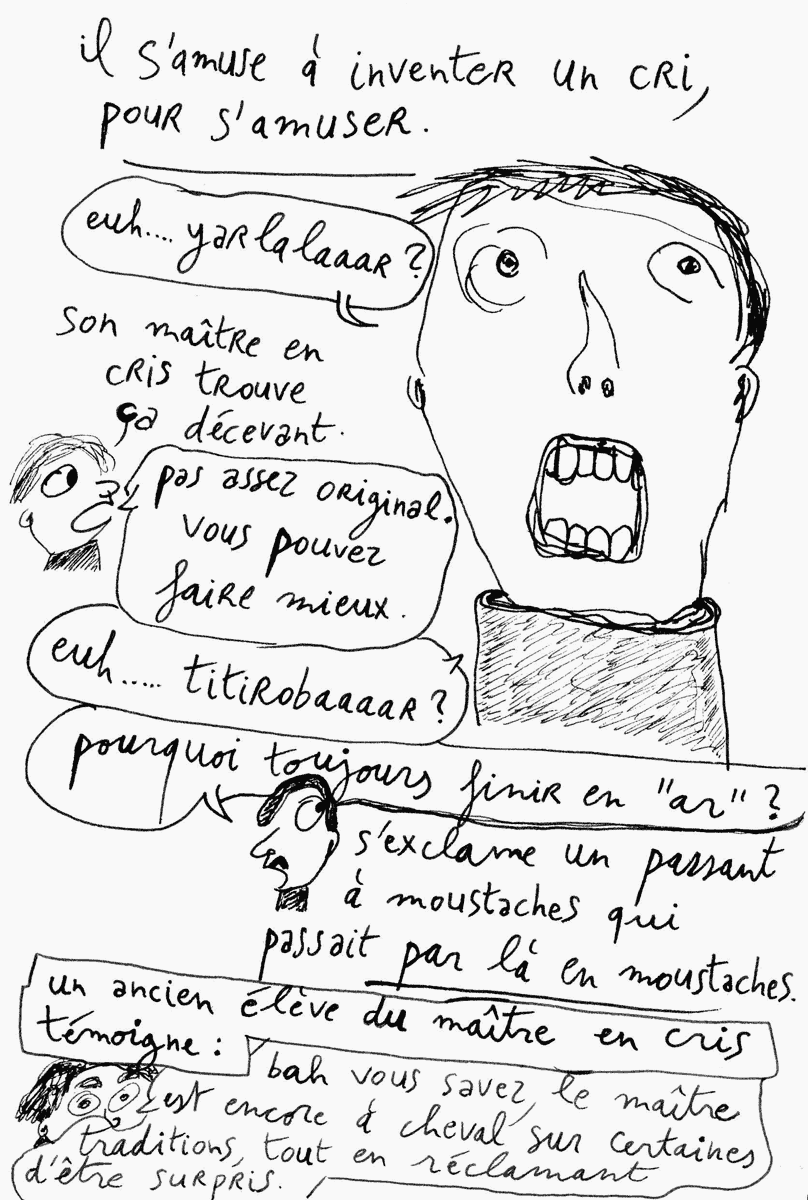 il s'amuse à inventer un cri,
pour s'amuser.
euh.... yarlalaaar ?
son maître en
cris trouve
ça décevant.
pas assez original.
vous pouvez
faire mieux.
euh..... titirobaaaar ?
pourquoi toujours finir en "ar" ?
s'exclame un passant
à moustaches qui
passait par là en moustaches.
un ancien élève du maître en cris
témoigne :
bah vous savez, le maître
est encore à cheval sur certaines
traditions, tout en réclamant
d'être surpris.